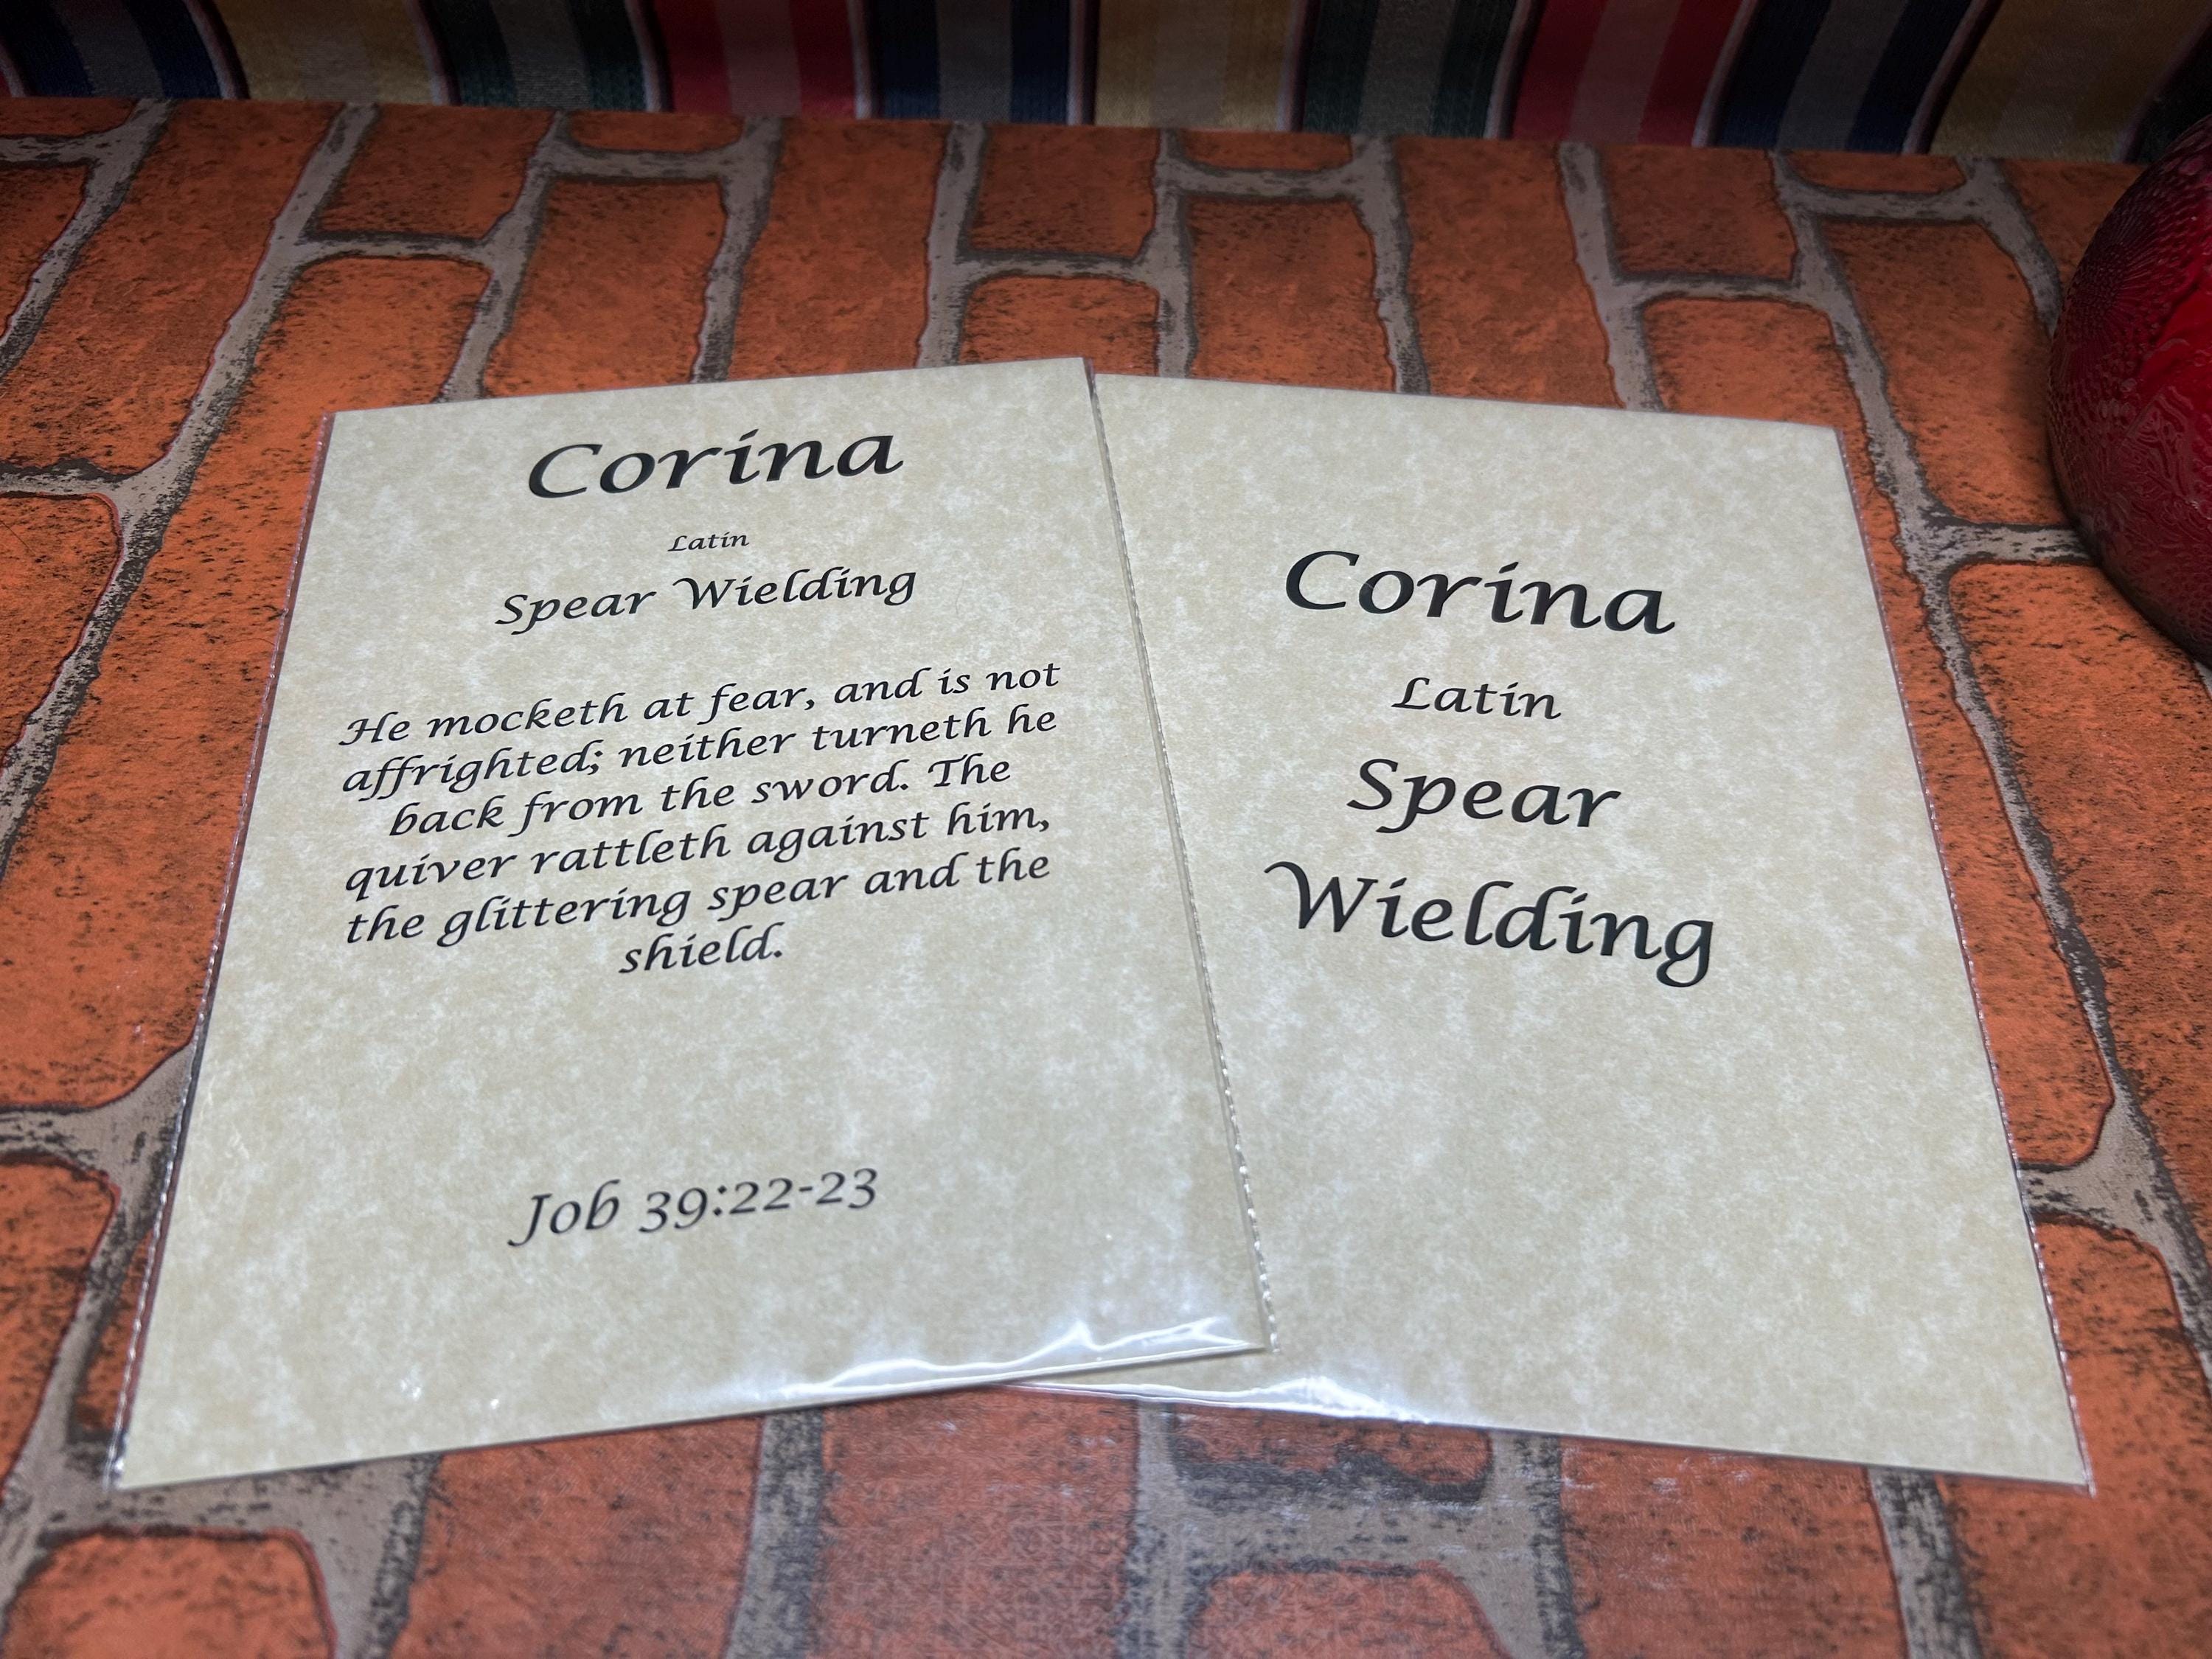 Corina
Latin
Spear Wielding
He mocketh at fear, and is not
affrighted; neither turneth he
back from the sword. The
quiver rattleth against him,
the glittering spear and the
shield.
Job 39:22-23
Corina
Latin
Spear
Wielding